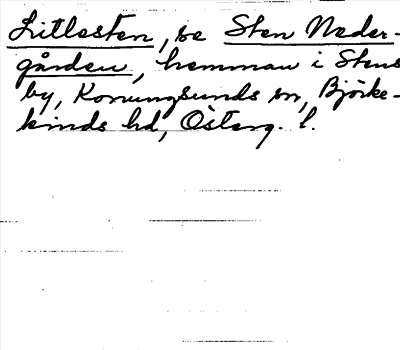 Litlesten, se Sten Neder-
gården, hemman i Stens
by, Konungsunds sn, Björke-
kinds hd, Österg. l.